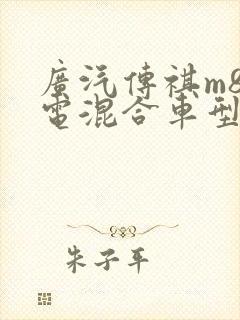 廣汽傳祺m8
電混合車型
朱子平